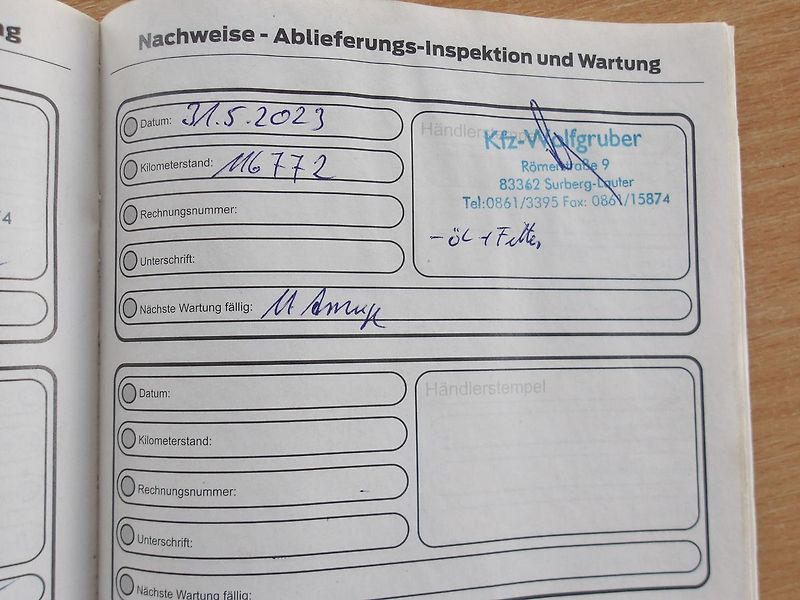 ng
Nachweise - Ablieferungs-Inspektion und Wartung
Datum: 31.5.2023
Kilometerstand: 116772
Rechnungsnummer:
Unterschrift:
Händlerstempel
Kfz-Wolfgruber
Römerstraße 9
83362 Surberg-Lauter
Tel:0861/3395 Fax: 0861/15874
- Öl + Filter
Nächste Wartung fällig:
74
Datum:
Kilometerstand:
Rechnungsnummer:
Unterschrift:
Händlerstempel
Nächste Wartung fällig: